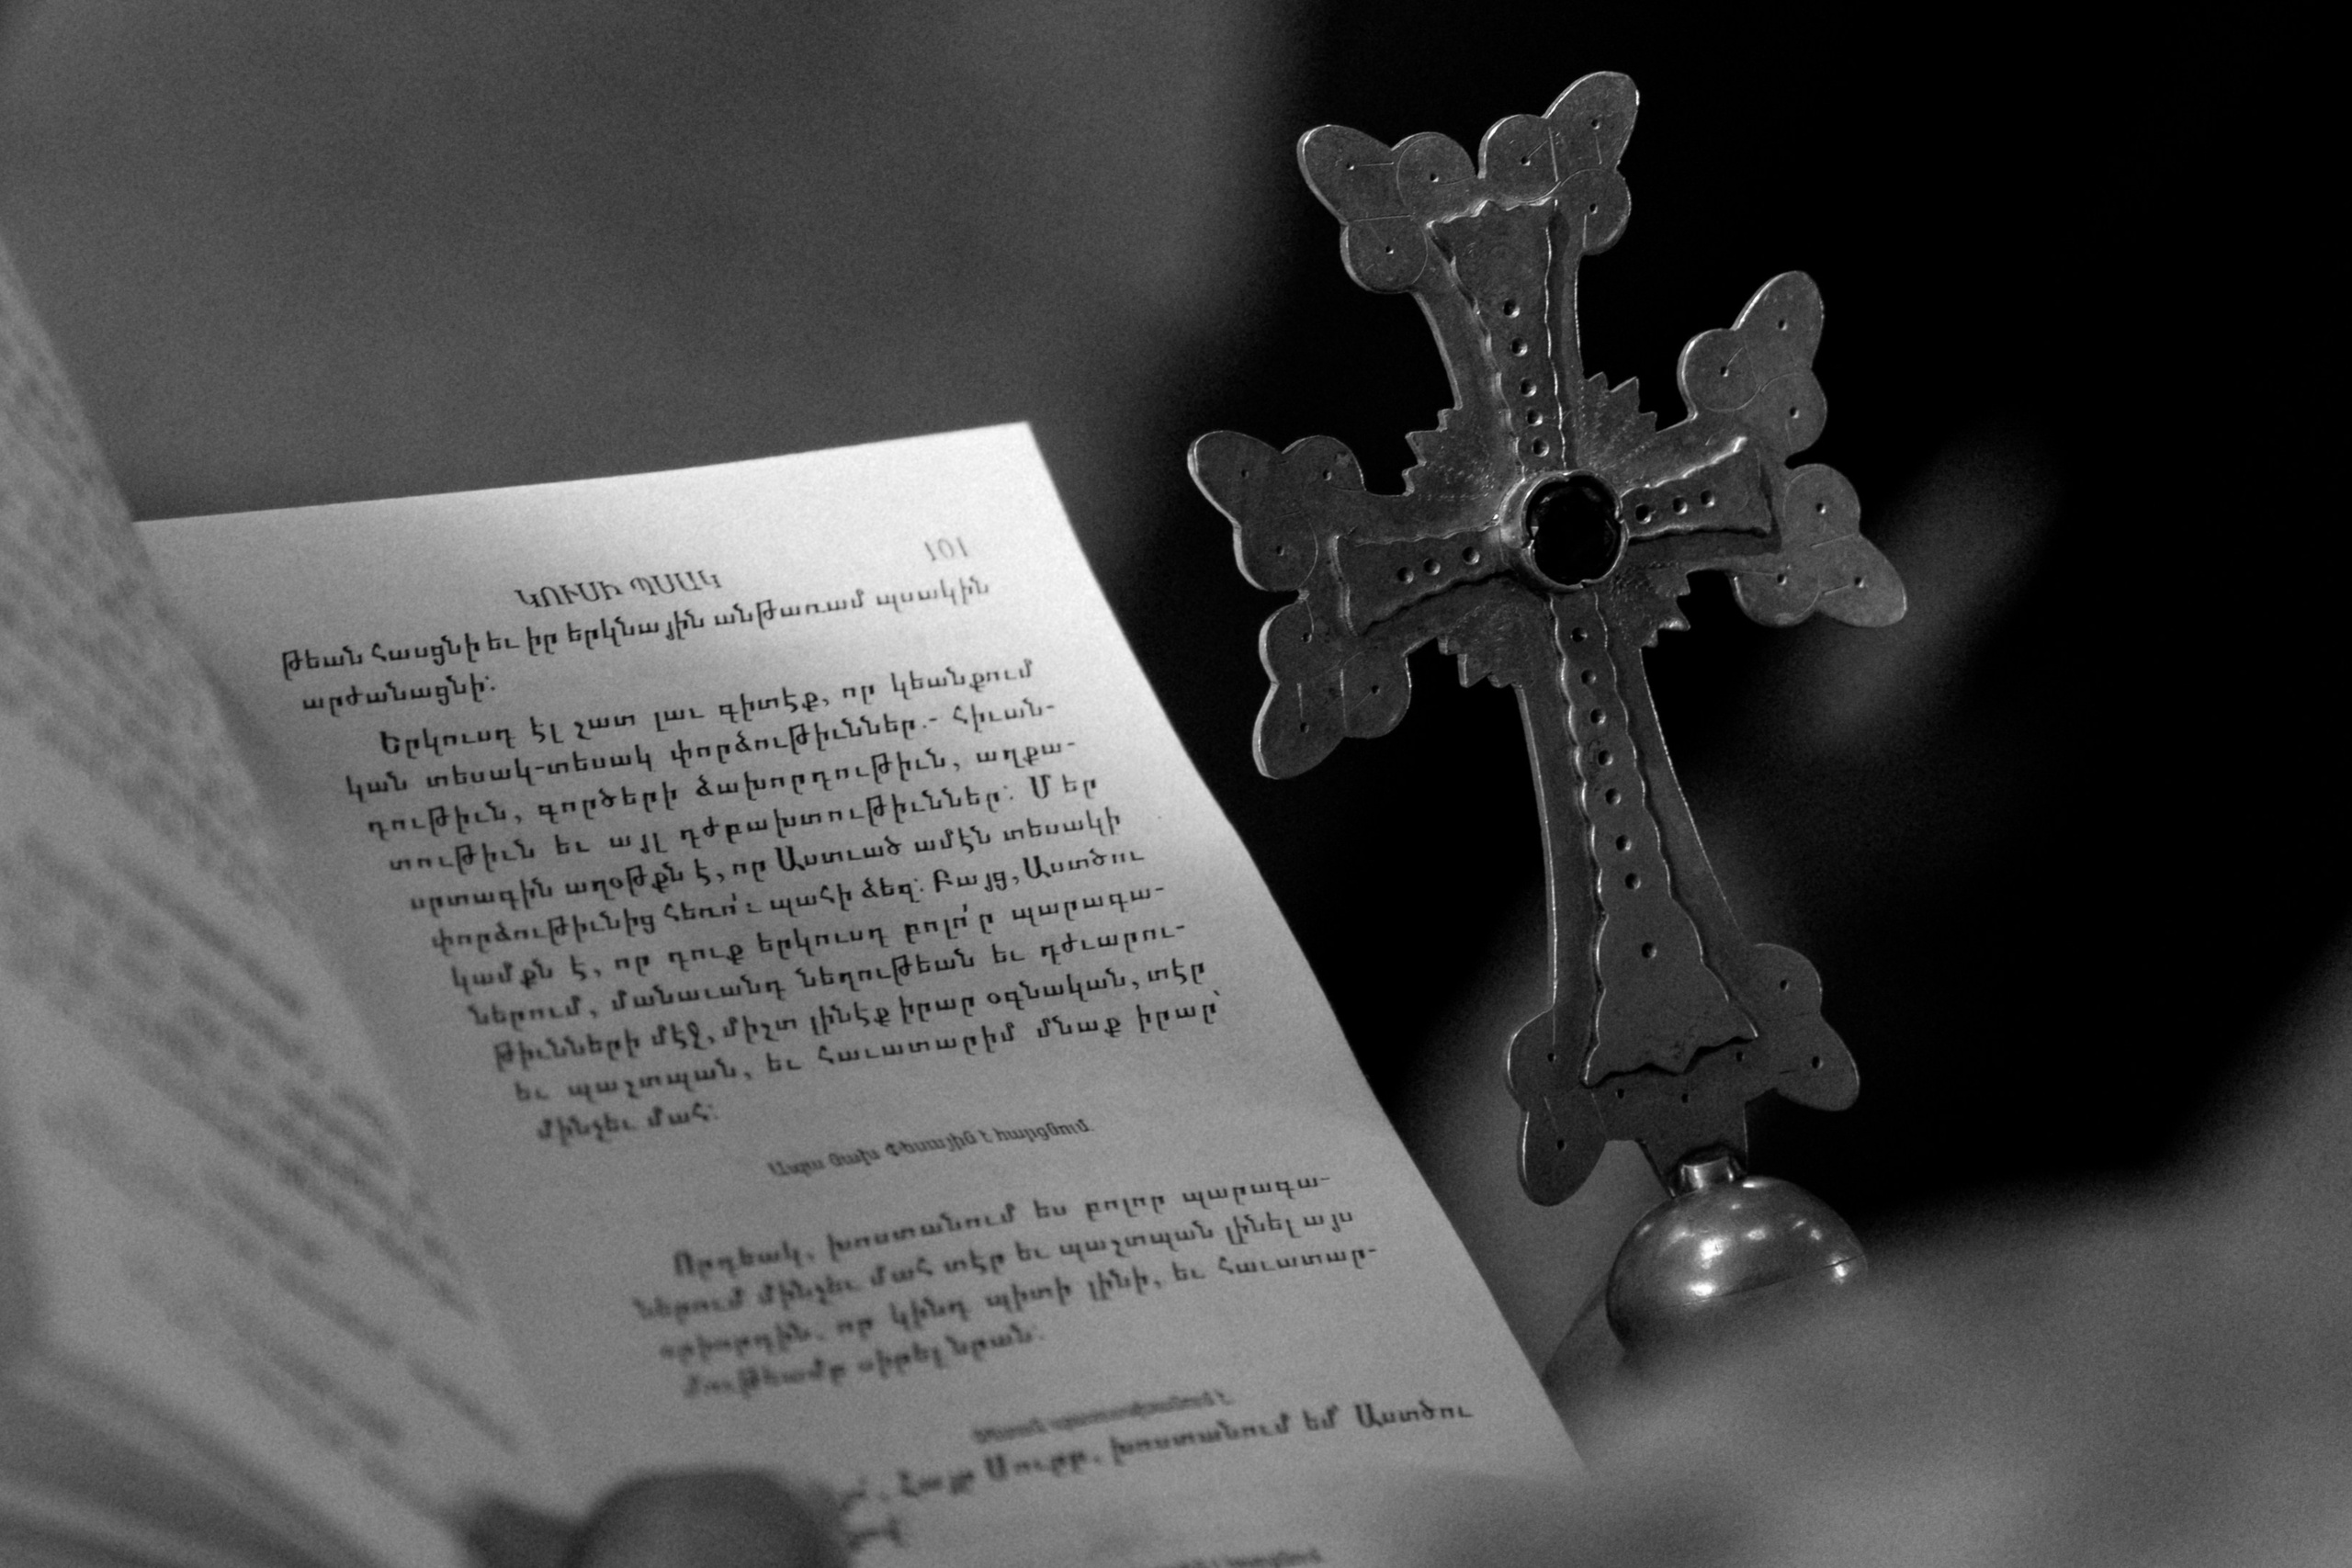 101
ԿՈՒՍԻ ՊՍԱԿ
թեան հասցնի եւ իր երկնային անթառամ պսակին
արժանացնի:
Երկուսդ էլ շատ լաւ գիտէք, որ կեանքում
կան տեսակ-տեսակ փորձութիւններ.- հիւան-
դութիւն, գործերի ձախորդութիւն, աղքա-
տութիւն եւ այլ դժբախտութիւններ: Մեր
սրտագին աղօթքն է, որ Աստւած ամէն տեսակի
փորձութիւնից հեռո՛ւ պահի ձեզ: Բայց, Աստծու
կամքն է, որ դուք երկուսդ բոլո՛ր պարագա-
ներում, մանաւանդ նեղութեան եւ դժւարու-
թիւնների մէջ, միշտ լինէք իրար օգնական, տէր
եւ պաշտպան, եւ հաւատարիմ մնաք իրար՝
մինչեւ մահ:
Ապա նախ Փեսային է հարցնում.
Որդեակ, խոստանում ես բոլոր պարագա-
ներում մինչեւ մահ տէր եւ պաշտպան լինել այս
օրիորդին, որ կինդ պիտի լինի, եւ հաւատար-
մութեամբ սիրել նրան:
Փեսան պատասխանում է.
Հայր Սուրբ, խոստանում եմ Աստծու